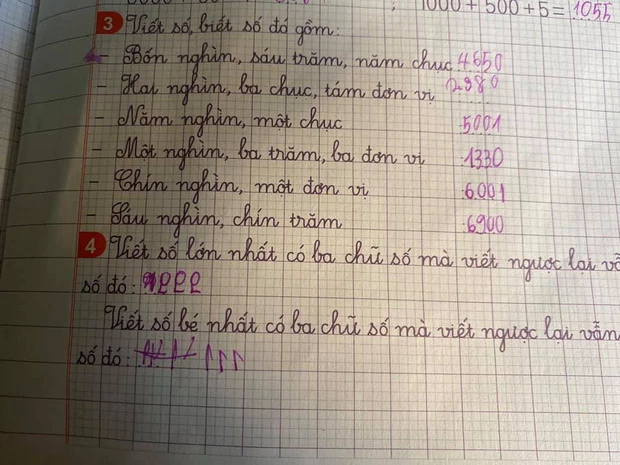 1000 + 500 + 5 = 1055
3 Viết số, biết số đó gồm:
- Bốn nghìn, sáu trăm, năm chục 4650
- Hai nghìn, ba chục, tám đơn vị 2380
- Năm nghìn, một chục 5001
- Một nghìn, ba trăm, ba đơn vị 1330
- Chín nghìn, một đơn vị 6001
- Sáu nghìn, chín trăm 6900
4 Viết số lớn nhất có ba chữ số mà viết ngược lại vẫ
số đó: 999
Viết số bé nhất có ba chữ số mà viết ngược lại vẫn
số đó: 111